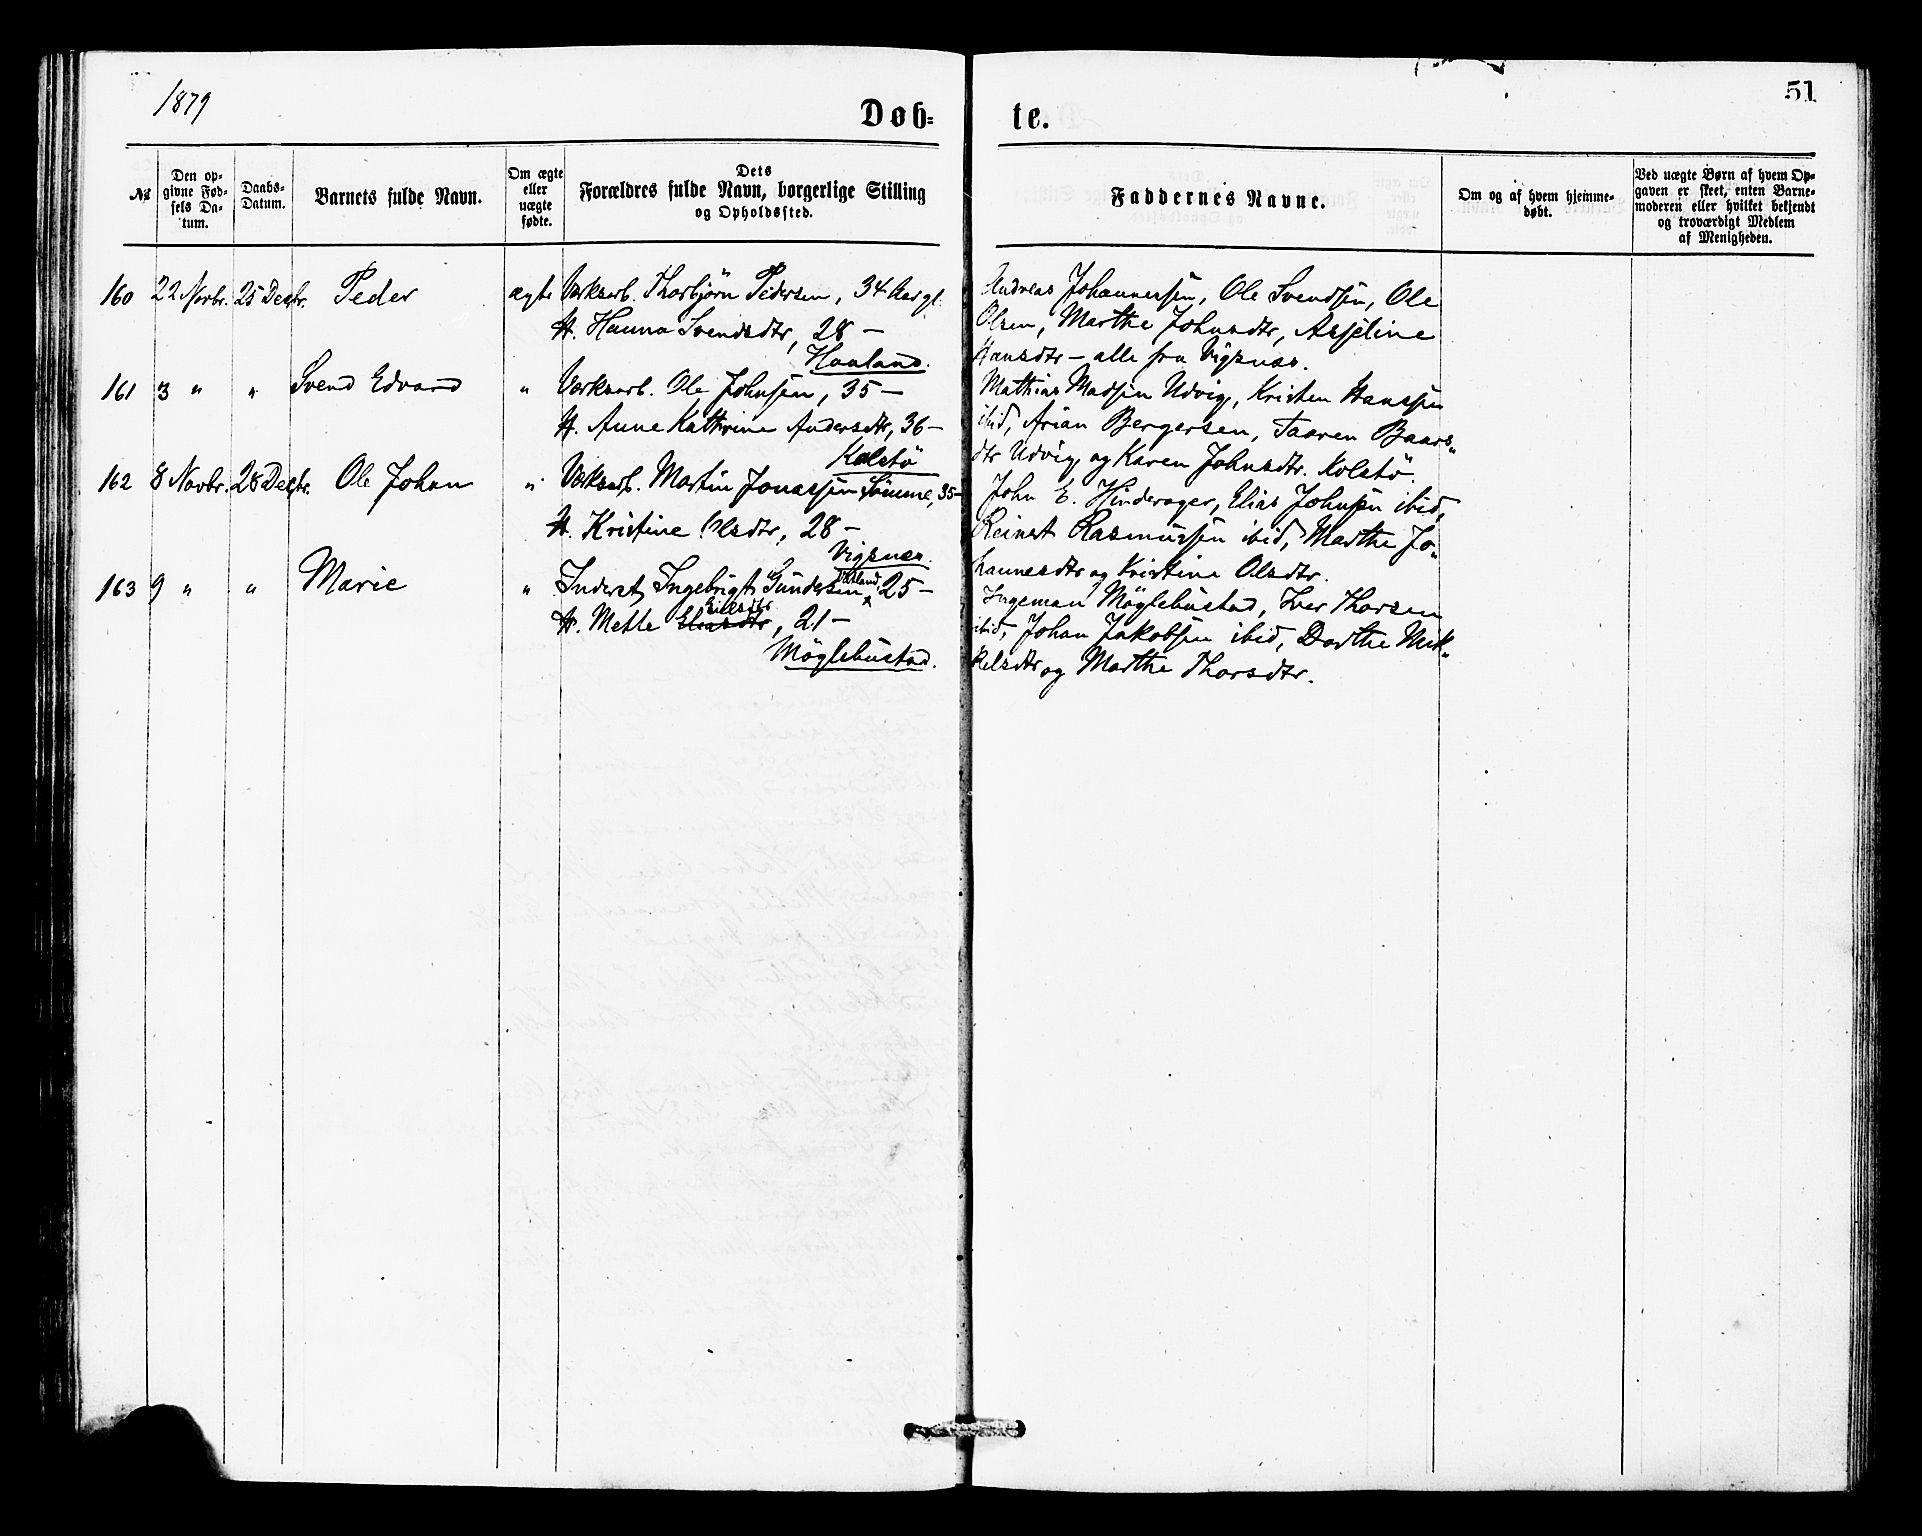 1879
51
Døb-
te.
№
Den op-
givne Fød-
sels Da-
tum.
Daabs-
Datum.
Barnets fulde Navn.
Om ægte
eller
uægte
fødte.
Dets
Forældres fulde Navn, borgerlige Stilling
og Opholdssted.
Faddernes Navne.
Om og af hvem hjemme-
døbt.
Ved uægte Børn af hvem Op-
gaven er skeet, enten Barne-
moderen eller hvilket bekjendt
og troværdigt Medlem
af Menigheden.
160 22 Novbr. 25 Decbr. Peder ægte Værksarb. Thorbjörn Pedersen, 34 Aar gl.
H. Hanna Svendsdtr, 28 –
Haaland.
Andreas Johannessen, Ole Svendsen, Ole
Olsen, Marthe Johnsdtr, Asseline
Hansdtr – alle fra Vigsnes.
161 3 " " Svend Edvard " Værksarb. Ole Johnsen, 35 –
H. Anne Kathrine Andersdtr, 36 –
Kolstö
Mathias Madsen Udvig, Kristen Hanssen
ibid, Arian Bergersen, Taaren Baars-
dtr Udvig og Karen Johnsdtr. Kolstö.
162 8 Novbr. 28 Decbr. Ole Johan " Værksarb. Martin Jonassen Sömme, 35 –
H. Kristine Olsdtr, 28 –
Vigsnes.
John E. Hinderager, Elias Johnsen ibid,
Reinert Rasmussen ibid, Marthe Jo-
hannesdtr og Kristine Olsdtr.
163 9 " " Marie " Inderst, Ingebrigt Gundersen 25 –
H. Mette Eliasdtr, 21 –
Möglebustad.
Ingeman Möglebustad, Iver Thorsen
ibid, Johan Jakobsen ibid, Dorthe Mik-
kelsdtr og Marthe Thorsdtr.